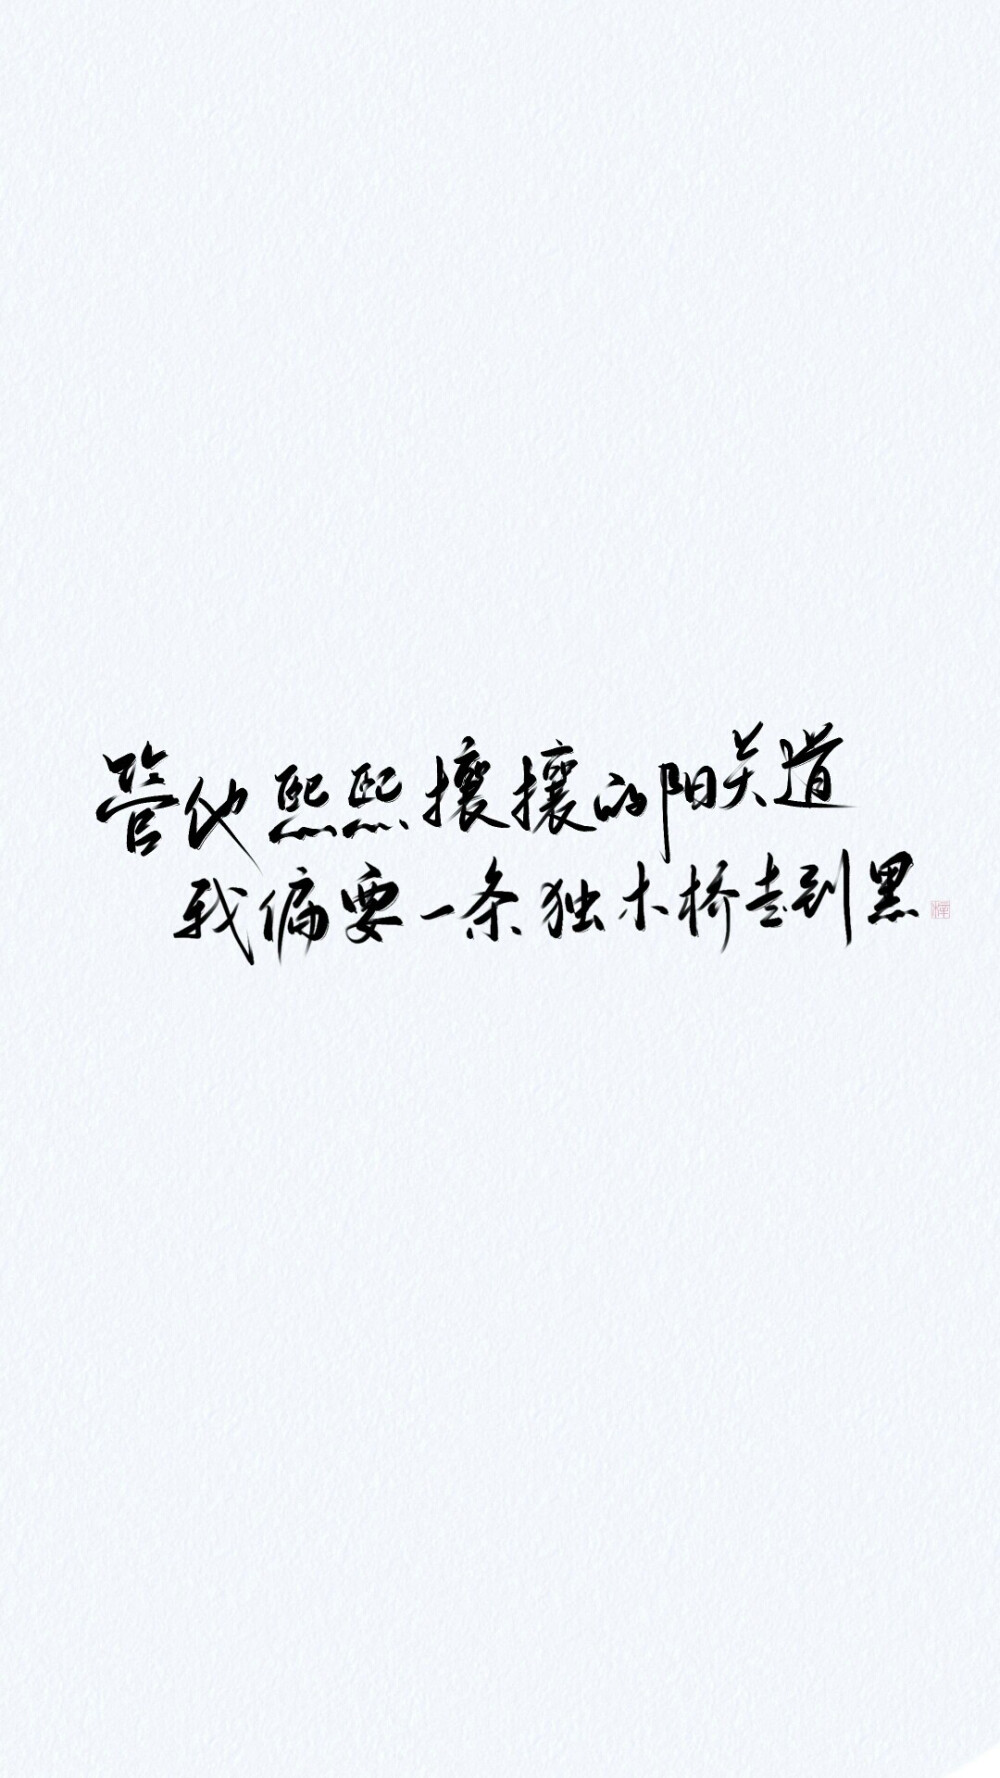 管他熙熙攘攘的阳关道
我偏要一条独木桥走到黑